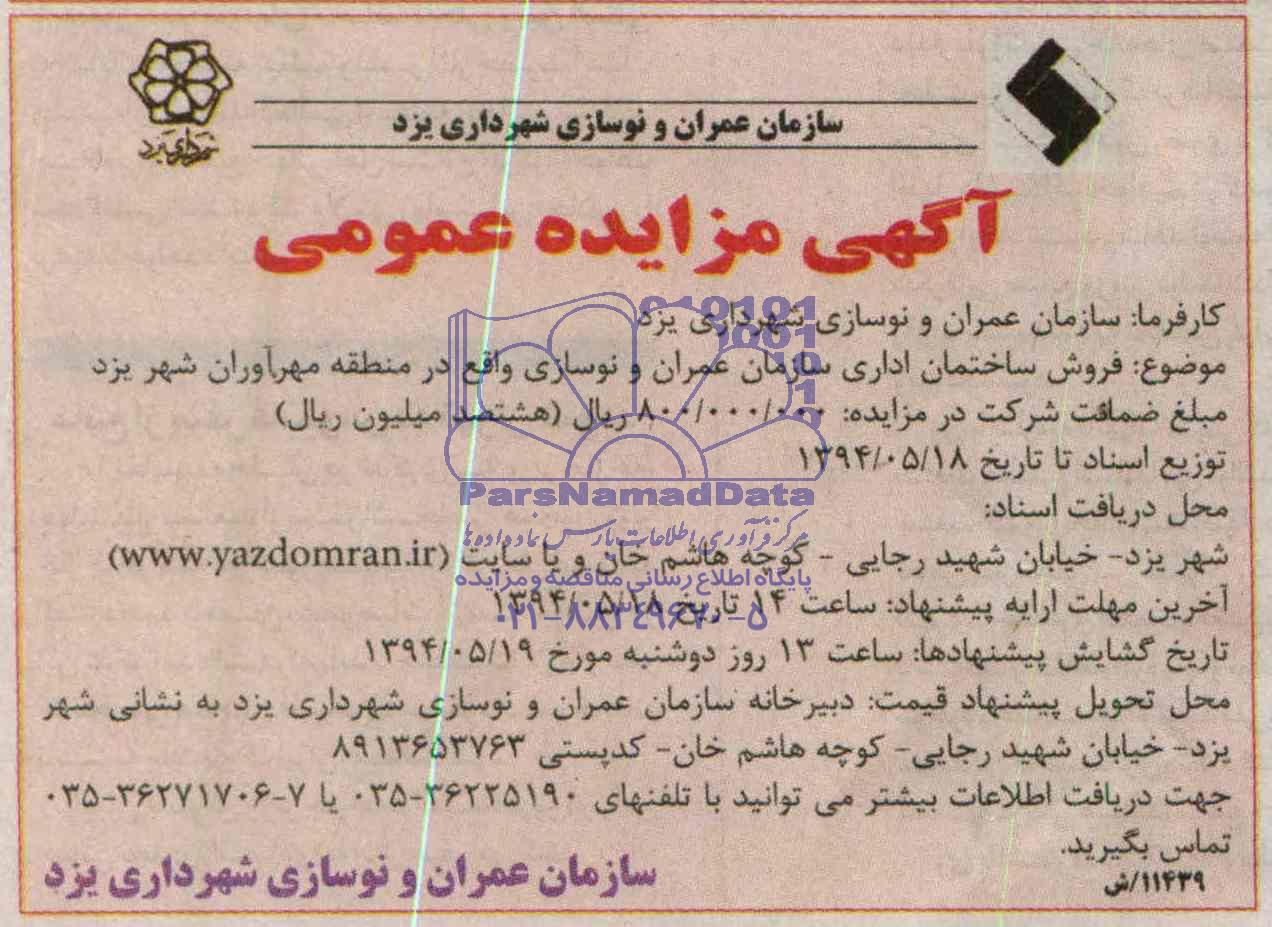 شهرداری یزد
سازمان عمران و نوسازی شهرداری یزد
آگهی مزایده عمومی
کارفرما: سازمان عمران و نوسازی شهرداری یزد
موضوع: فروش ساختمان اداری سازمان عمران و نوسازی واقع در منطقه مهرآوران شهر یزد
مبلغ ضمانت شرکت در مزایده: ۸۰۰/۰۰۰/۰۰۰ ریال (هشتصد میلیون ریال)
توزیع اسناد تا تاریخ ۱۳۹۴/۰۵/۱۸
ParsNamadData
محل دریافت اسناد:
مرکز فرآوری اطلاعات پارس نماد داده ها
شهر یزد- خیابان شهید رجایی - کوچه هاشم خان و یا سایت (www.yazdomran.ir)
پایگاه اطلاع رسانی مناقصه و مزایده
آخرین مهلت ارایه پیشنهاد: ساعت ۱۴ تاریخ ۱۳۹۴/۰۵/۱۸
۰۲۱-۸۸۳۴۹۶۷۰-۵
تاریخ گشایش پیشنهادها: ساعت ۱۳ روز دوشنبه مورخ ۱۳۹۴/۰۵/۱۹
محل تحویل پیشنهاد قیمت: دبیرخانه سازمان عمران و نوسازی شهرداری یزد به نشانی شهر
یزد- خیابان شهید رجایی- کوچه هاشم خان- کدپستی ۸۹۱۳۶۵۳۷۶۳
جهت دریافت اطلاعات بیشتر می توانید با تلفنهای ۳۶۲۲۵۱۹۰-۰۳۵ یا ۷-۳۶۲۷۱۷۰۶-۰۳۵
تماس بگیرید.
۱۱۴۳۹/ش
سازمان عمران و نوسازی شهرداری یزد